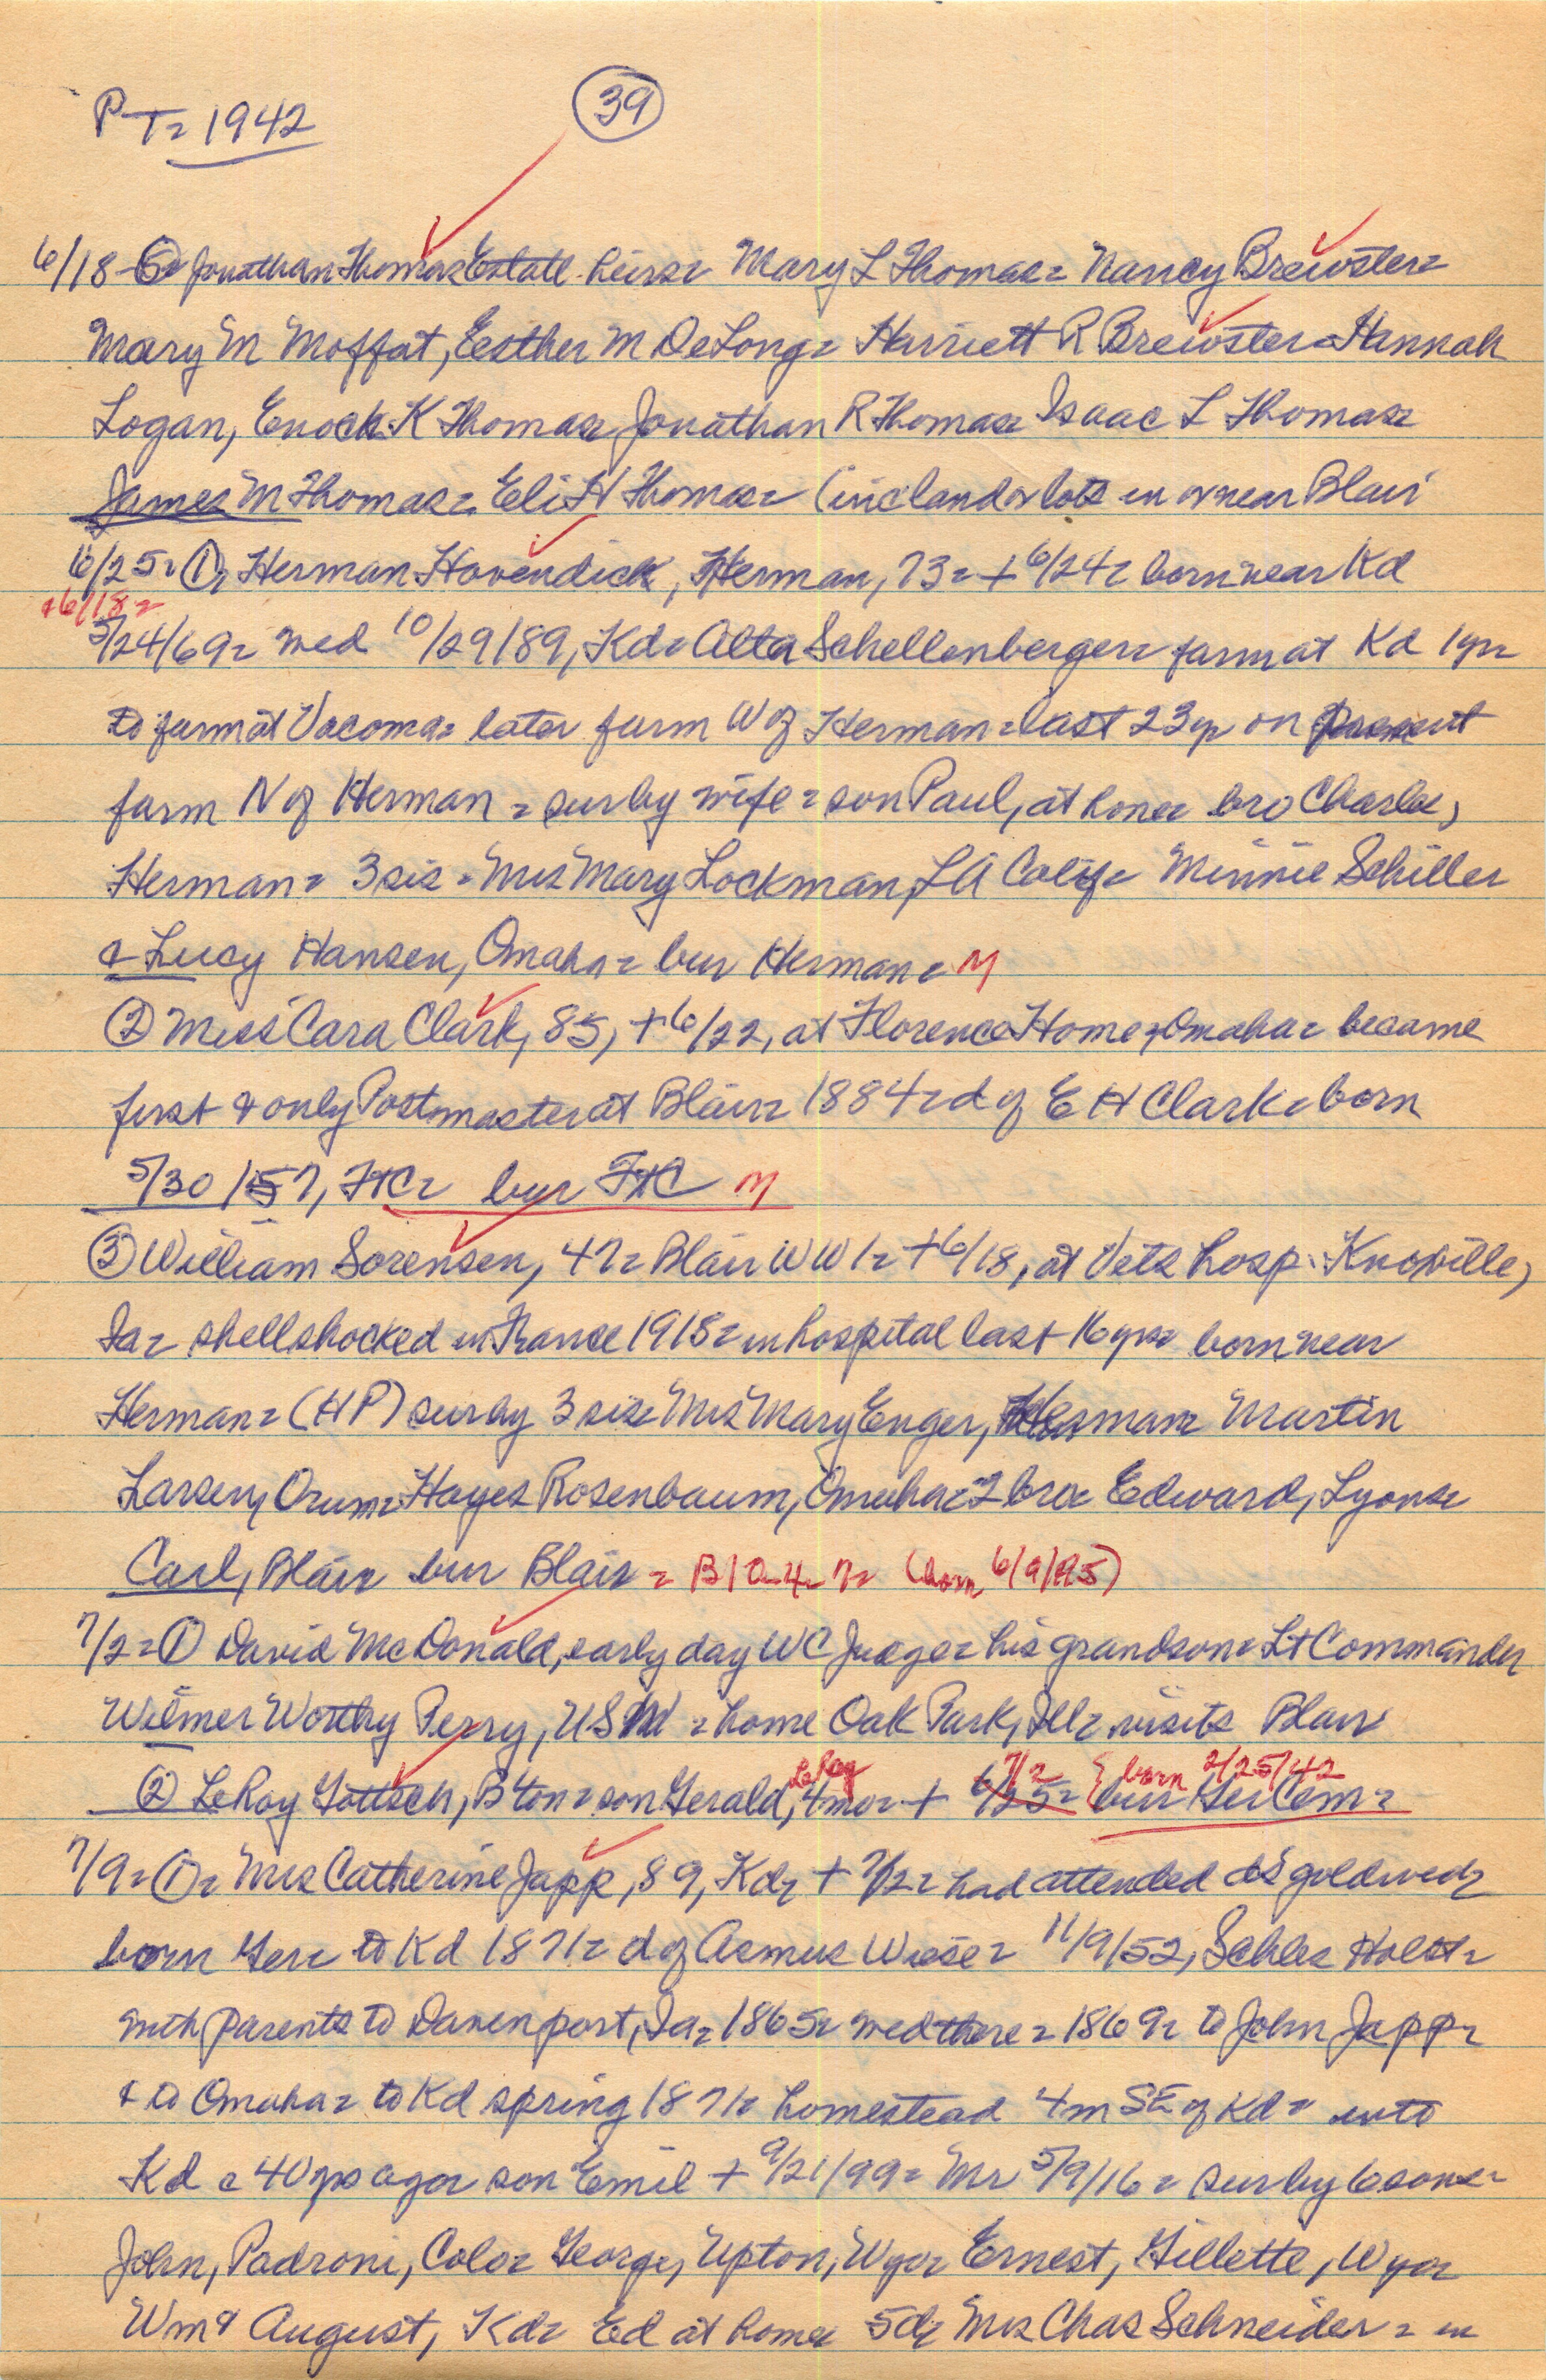 PT= 1942
39
6/18-6= Jonathan Thomas Estate heirs= Mary L Thomas= Nancy Brewster=
Mary M Moffat, Eesther M DeLong= Harriett R Brewster= Hannah
Logan, Enock K Thomas= Jonathan R Thomas= Isaac L Thomas=
James M Thomas= Eli H Thomas= (inc land or lots in or near Blair
6/25= 1, Herman Hovendick, Herman, 73= +6/24= born near Kd
+6/18=
5/24/69= wed 10/29/89, Kd= Alta Schellenberger= farm at Kd 1 yr=
to farm at Vacoma= later farm W of Herman= last 23 yr on present
farm N of Herman= surby wife= son Paul, at home= bro Charles,
Herman= 3 sis= Mrs Mary Lockman, LA Calif= Minnie Schiller
& Lucy Hansen, Omaha= bur Herman= M
2 Miss Cara Clark, 85, +6/22, at Florence Home, Omaha= became
first & only Postmaster at Blair= 1884= d of E H Clark= born
5/30/57, FtC= bur FtC M
3 William Sorensen, 47= Blair WW1= +6/18, at Vets hosp. Knoxville,
Ia= shellshocked in France 1918= in hospital last 16 yrs= born near
Herman= (HP) surby 3 sis= Mrs Mary Enger, Herman= Martin
Larsen, Orum= Hayes Rosenbaum, Omaha= 2 bro= Edward, Lyons=
Carl, Blair= bur Blair= B10-4-7= (born 6/9/95)
7/2= 1 David McDonald, early day WC Judge= his grandson= Lt Commander
Wilmer Worthy Perry, USN= home Oak Park, Ill= visits Blair
LeRoy 7/2 born 2/25/42
2 LeRoy Gottsch, B'ton= son Gerald, 4 mo= + 6/25= bur Ger Cem=
7/9= 1= Mrs Catherine Japp, 89, Kd, + 7/2= had attended ds gold wed=
born Ger= to Kd 1871= d of Asmus Wiese= 11/9/52, Schles Holst=
with parents to Davenport, Ia= 1865= wed there= 1869= to John Japp=
& to Omaha= to Kd spring 1871= homestead 4m SE of Kd= into
Kd c 40 yrs ago= son Emil + 9/21/99= Mr 5/9/16= surby 6 sons=
John, Padroni, Colo= George, Upton, Wyo= Ernest, Gillette, Wyo=
Wm & August, Kd= Ed at home= 5d= Mrs Chas Schneider= in